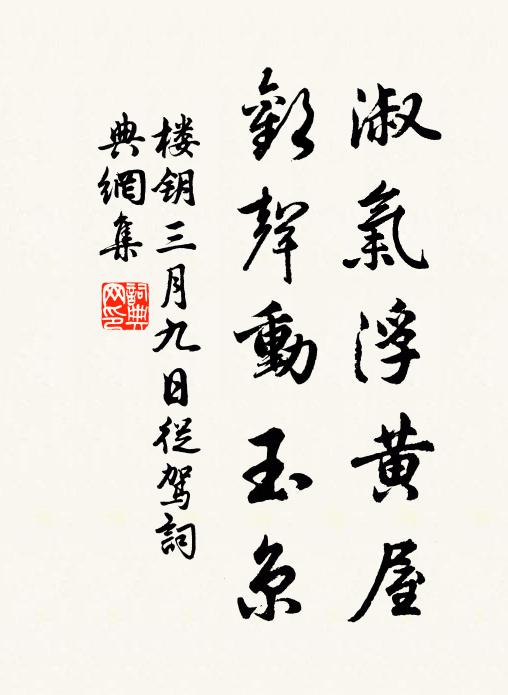 淑氣浮黄屋
歡聲動玉京
楼钥三月九日從駕詞
典網集
詞典
网印